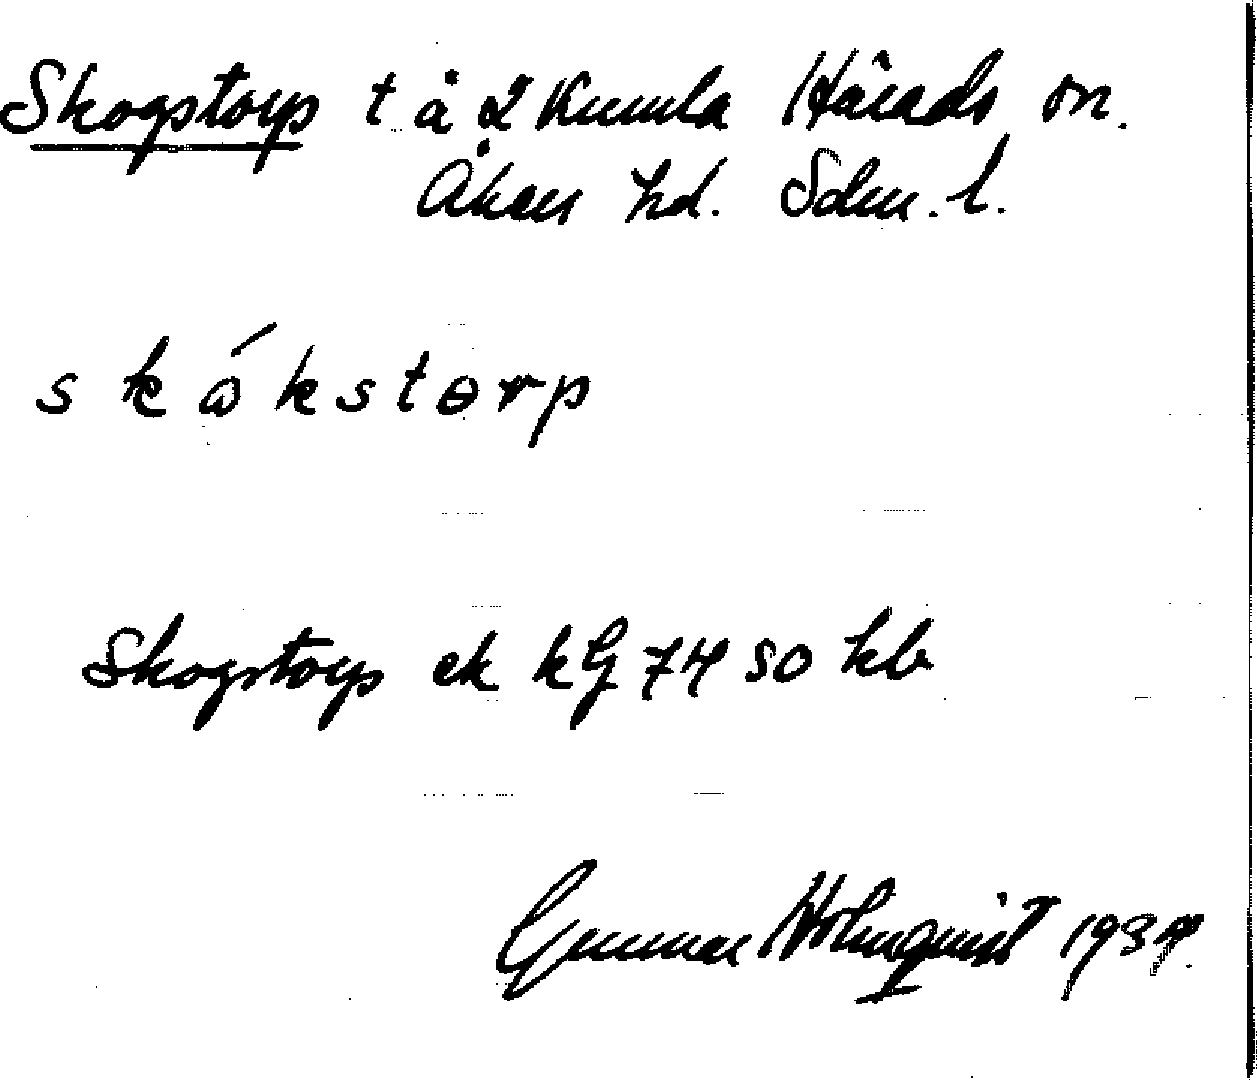 Skogstorp t å 2 Kumla Härads sn.
Åkers hd. Sdm. l.
skåkstorp
Skogstorp ek kG 74 50 hb
Gunnar Holmquist